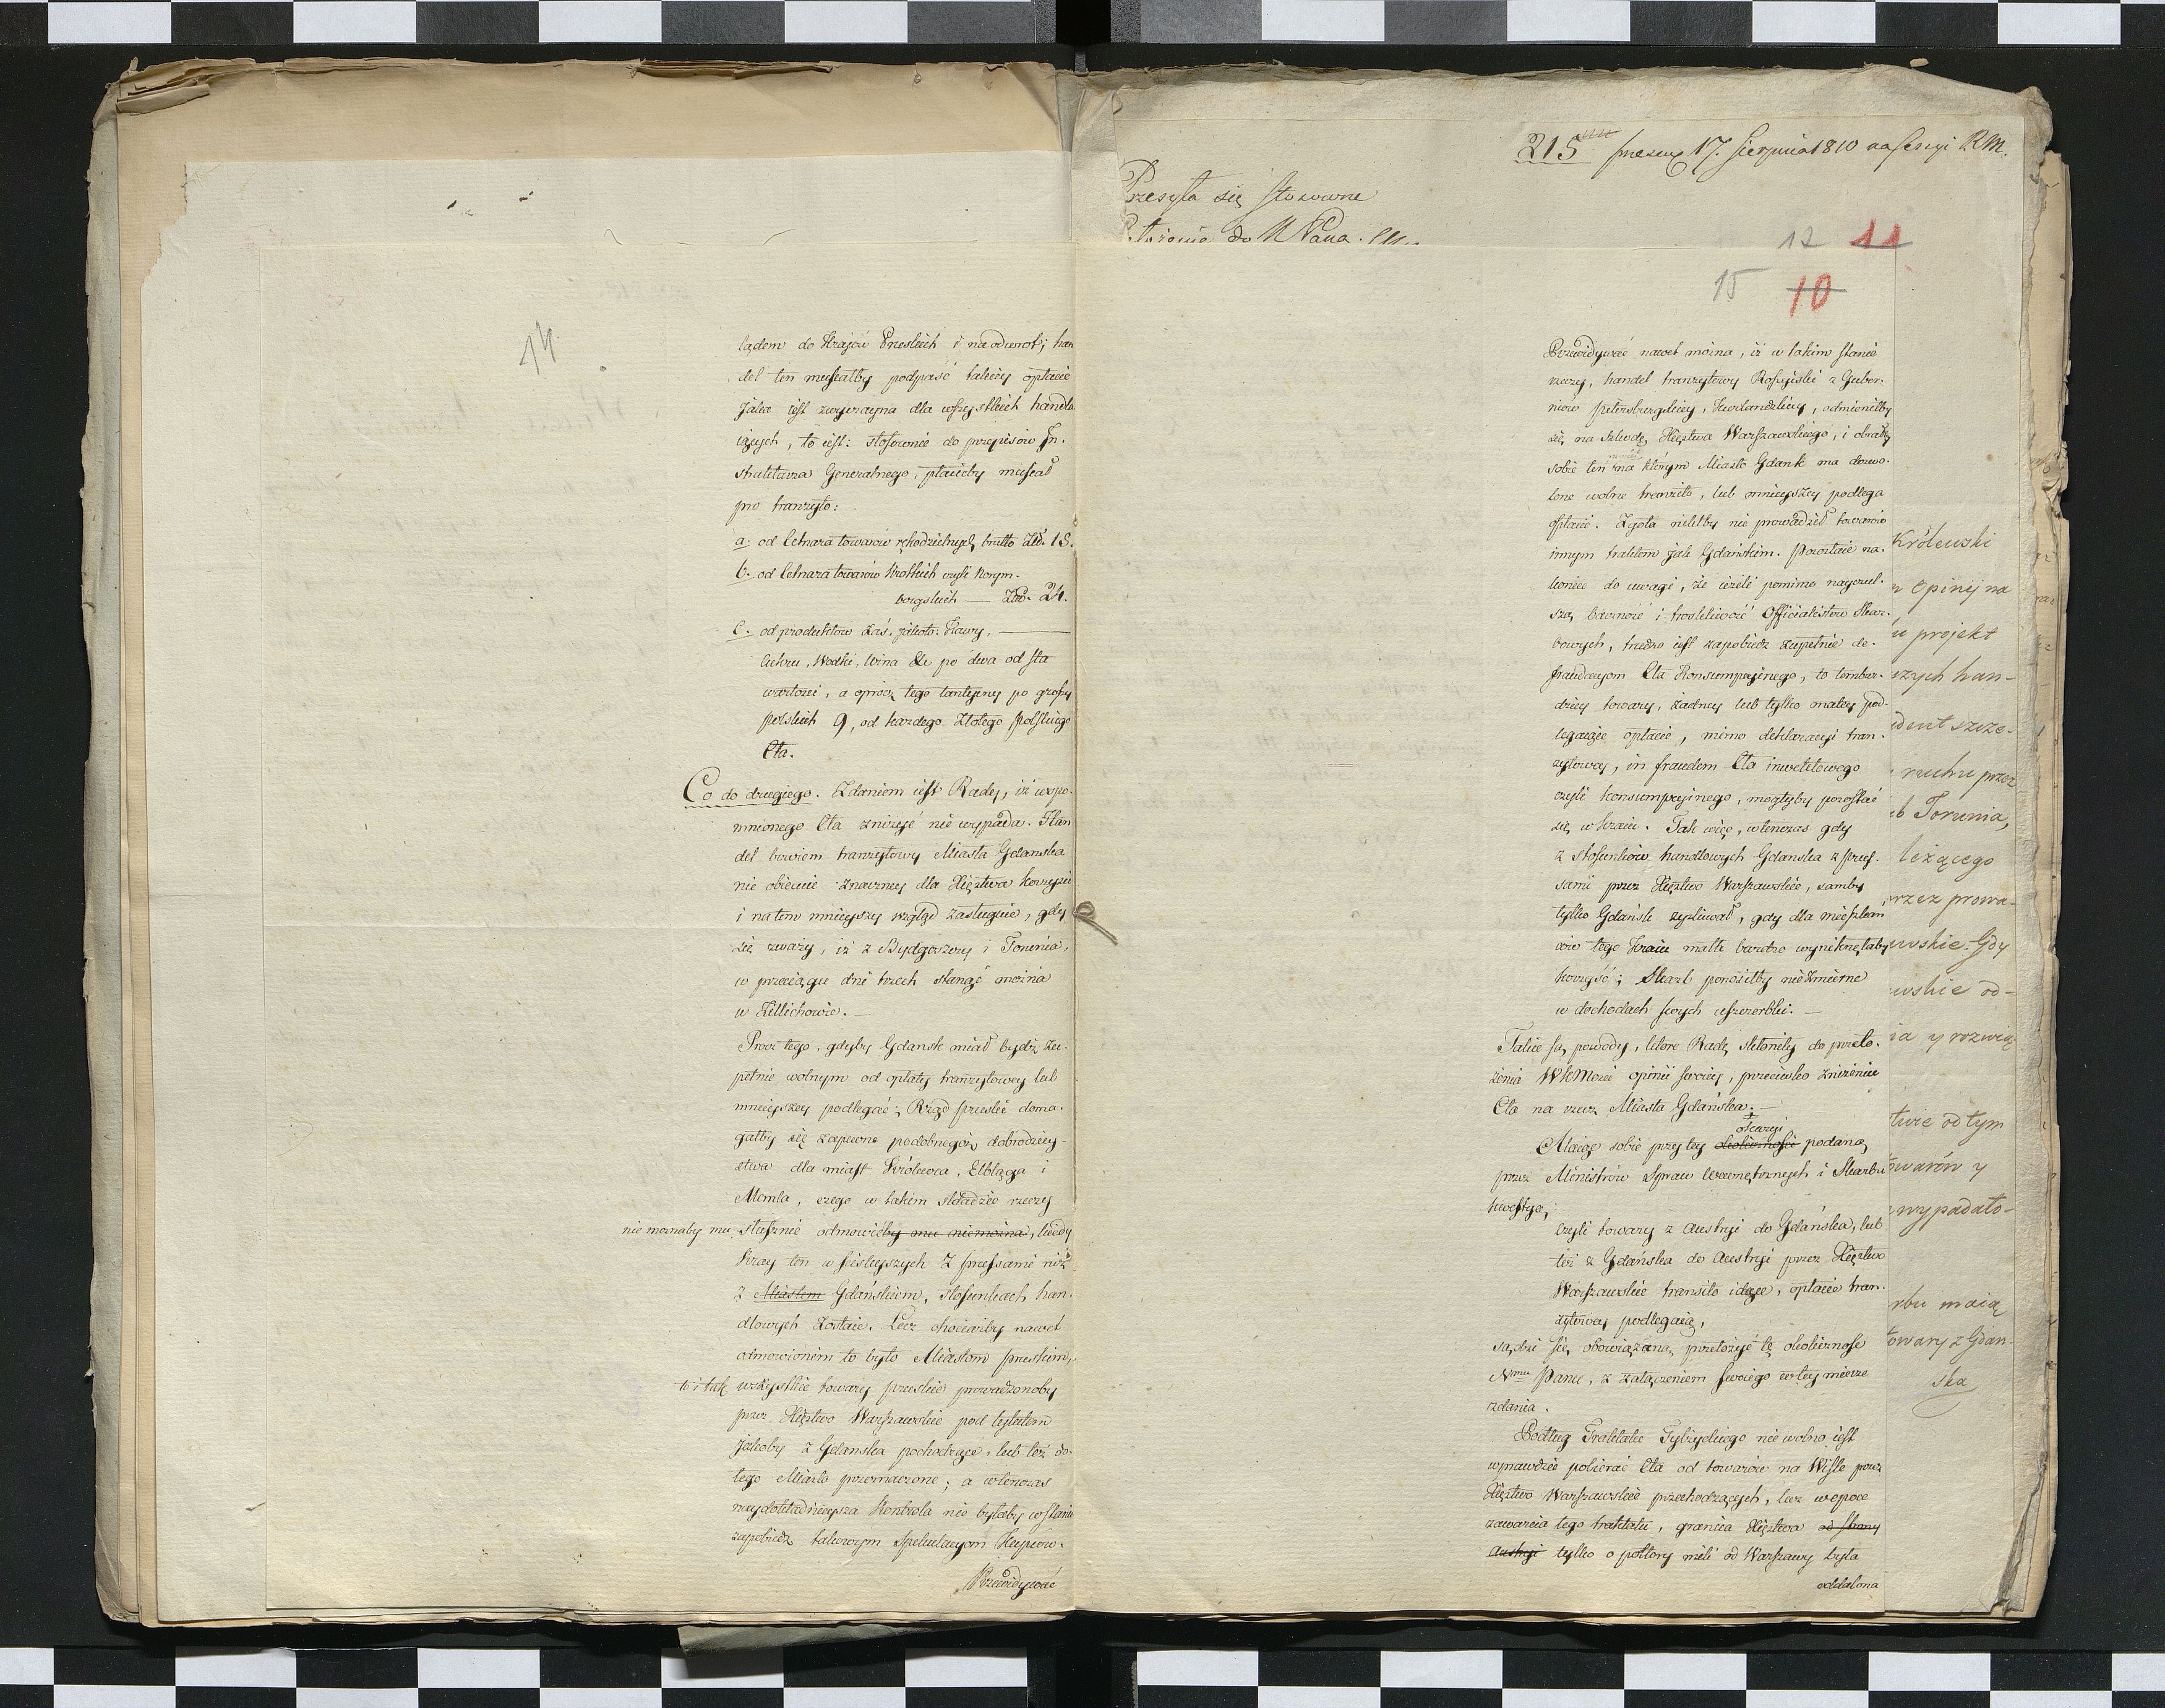 14
lądem do Krajów Pruskich i na odwrot; han
del ten musiałby podpaść takiey opłacie
jaka iest zwyczayna dla wszystkich handlu
iących, to iest: stosownie do przepisów In-
struktarza Generalnego, płacićby musiał
pro tranzyto:
a. od Cetnara towarów rękodzielnych, brutto Złł. 18.
b. od Cetnara towarów krótkich czyli Norym-
bergskich — Złł. 24.
c. od produktów zaś, jakoto: Kawy, —
Cukru, Wodki, Wina &c po dwa od sta
wartości, a oprócz tego tantyemy po groszy
polskich 9, od każdego złotego polskiego
Cła.
Co do drugiego. Zdaniem iest Rady, iż wspo-
mnionego Cła zniżyć nie wypada. Han
del bowiem tranzytowy Miasta Gdanska
nie obiecuie znaczney dla Xięztwa korzyści
i na tem mnieyszy wzgląd zasługuie, gdy
się zważy, iż z Bydgoszczy i Torunia,
w przeciągu dni trzech stanąć można
w Zillichowie. —
Procz tego, gdyby Gdansk miał bydź zu-
pełnie wolnym od opłaty tranzytowey lub
mnieyszey podlegać; Rząd pruski doma-
gałby się zapewne podobnegoż dobrodziey-
stwa dla miast Królewca, Elbląga i
Memla, czego w takim składzie rzeczy
nie moznaby mu słusznie odmowićby mu niemożna, kiedy
Kray ten w ściśleyszych z prussami niż
z Miastem Gdańskiem, stosunkach han-
dlowych zostaie. Lecz chociażby nawet
odmowionem to było Miastom pruskim,
to i tak wszystkie towary pruskie prowadzonoby
przez Xięztwo Warszawskie pod tytułem
jakoby z Gdanska pochodzące, lub też do
tego Miasta przeznaczone; a wtenczas
naydokładnieysza Kontrola nie byłaby w stanie
zapobiedz takowym spekulacyom Kupców.
Przewidywać
215 præsent 17. Sierpnia 1810 na Sessyi R.M.
Przesyła się stosowne
do N Pana
12 11
15 10
Przewidywać nawet można, iż w takim stanie
rzeczy, handel tranzytowy Rossyiski z Guber-
niów petersburgskiey, Kurlandzkiey, odmieniłby
się na szkodę Xięztwa Warszawskiego, i obrałby
sobie ten na którym Miasto Gdansk ma dozwo-
lone wolne tranzito, lub mnieyszey podlega
opłacie. Zgoła niktby nie prowadził towarów
innym traktem jak Gdańskim. Pozostaie na-
koniec do uwagi, że ieżeli pomimo nayczul-
szą baczność i troskliwość Officialistów Skar-
bowych, trudno iest zapobiedz zupełnie de-
fraudacyom Cła Konsumpcyinego, to tembar-
dziey towary, żadney lub tylko małey pod-
legaiące opłacie, mimo deklaracyi tran-
zytowey, in fraudem Cła inwektowego
czyli konsumpcyinego, mogłyby pozostać
się w kraiu. Tak więc, wtenczas gdy
z stosunków handlowych Gdanska z prus-
sami przez Xięztwo Warszawskie, samby
tylko Gdańsk zyskiwał, gdy dla mieszkań
ców tego Kraiu mała bardzo wyniknęłaby
korzyść; Skarb ponosiłby niezmierne
w dochodach swych uszczerbki. —
Takie są powody, które Radę skłoniły do przeło-
żenia WKMości opinii swoiey, przeciwko zniżeniu
Cła na rzecz Miasta Gdańska. —
okazyi
Maiąc sobie przy tey okoliczności podaną
przez Ministrów Spraw Wewnętrznych i Skarbu
kwestyą,
Czyli towary z Austryi do Gdańska, lub
też z Gdańska do Austryi przez Xięztwo
Warszawskie transito idące, opłacie tran-
zytowey podlegaią,
sądzi się obowiązaną przełożyć tę okoliczność
Nmu Panu, z załączeniem swoiego w tey mierze
zdania.
Podług Traktatu Tylżyckiego nie wolno iest
wprawdzie pobierać Cła od towarów na Wiśle przez
Xięztwo Warszawskie przechodzących, lecz w epoce
zawarcia tego traktatu, granica Xięztwa od strony
Austryi tylko o półtory mili od Warszawy była
oddalona
Królewski
Opinij na
projekt
szych han-
dent szcze-
ruchu przez
Torunia,
leżącego
przez prowa-
wskie. Gdy
wskie od-
ia y rozwią
twie od tym
towarów y
wypadało-
rbu maią
towary z Gdan-
ska